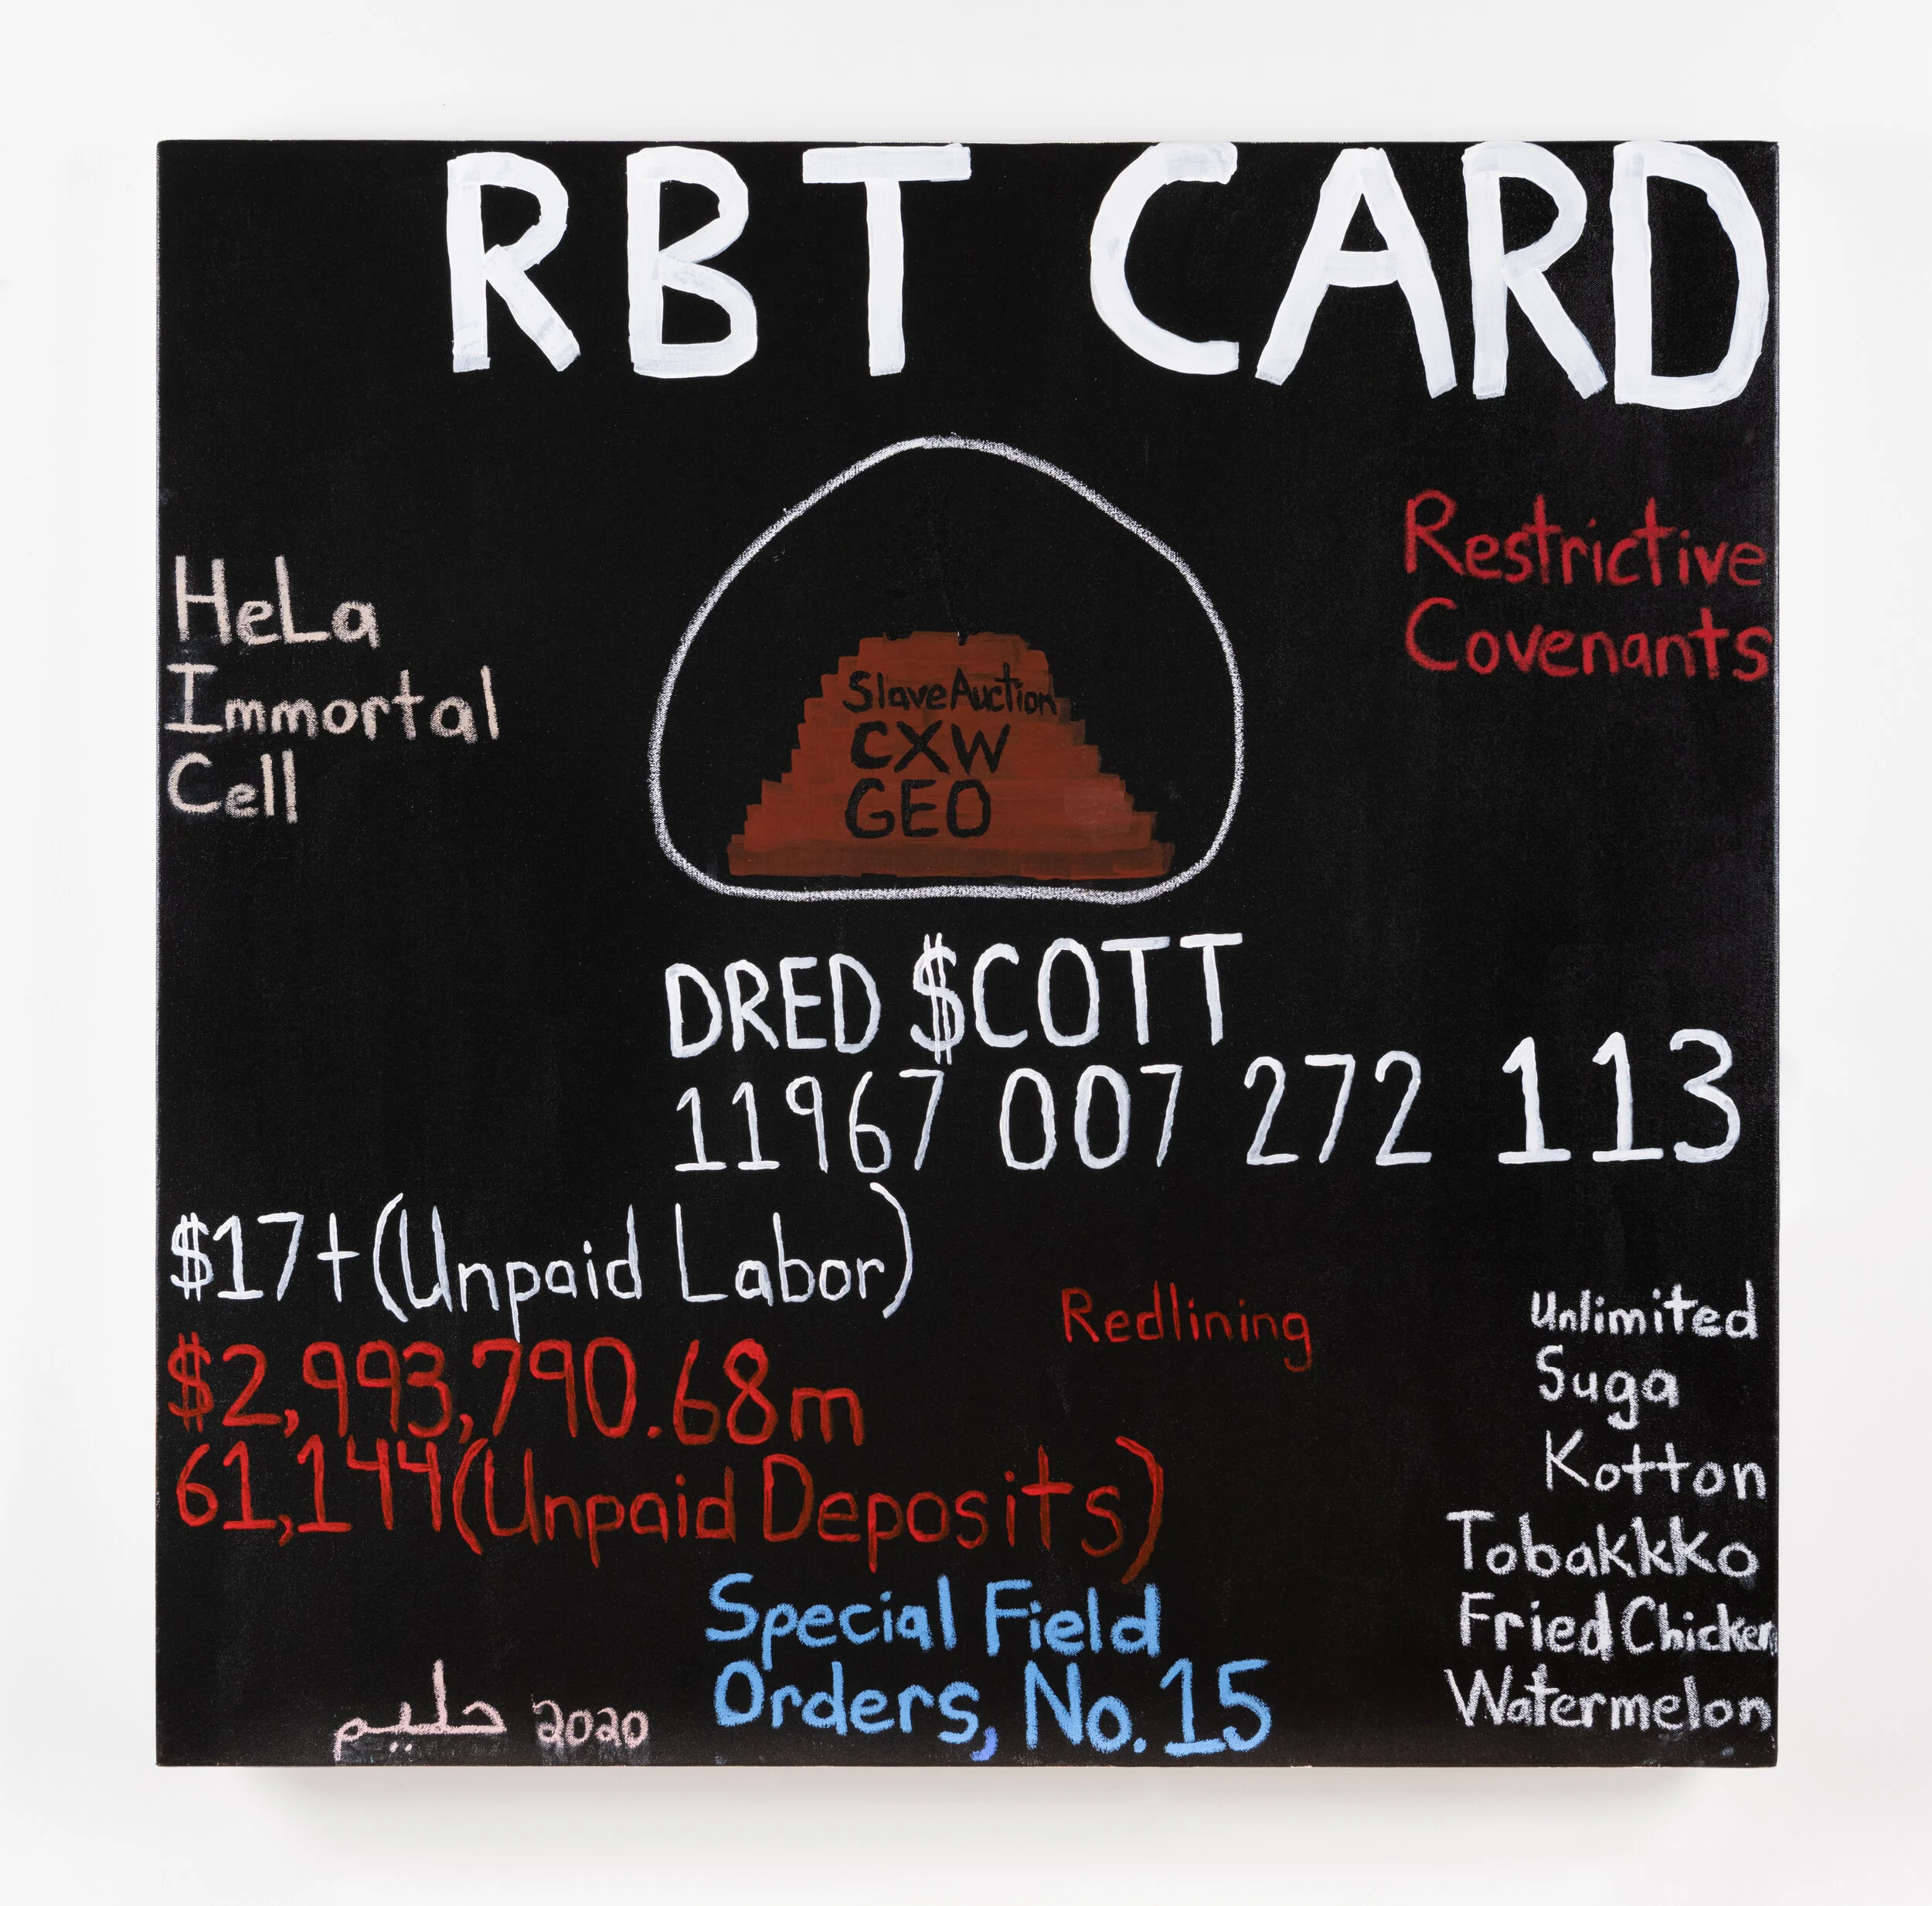 RBT CARD
HeLa
Immortal
Cell
Restrictive
Covenants
Slave Auction
CXW
GEO
DRED $COTT
11967 007 272 113
$17+(Unpaid Labor)
$2,993,790.68m
61,144(Unpaid Deposits)
Redlining
Unlimited
Suga
Kotton
Tobakkko
Fried Chicken
Watermelon
Special Field
Orders, No.15
حليم 2020